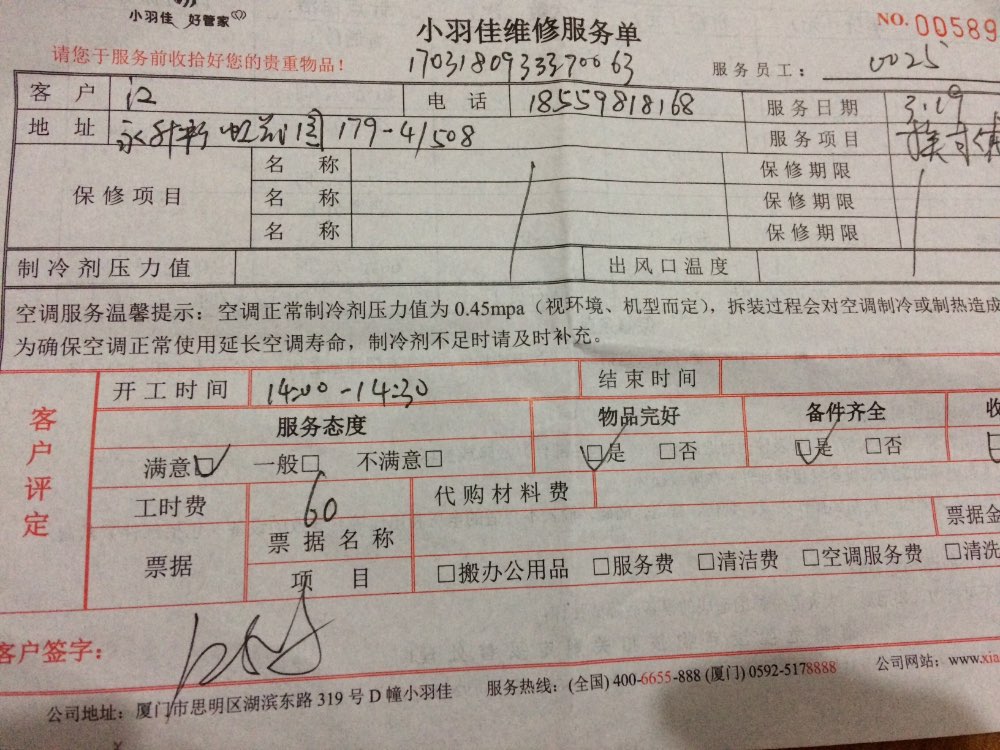 小羽佳 好管家
小羽佳维修服务单
NO. 00589
请您于服务前收拾好您的贵重物品！
17031809333370063
服务员工： 0025
客 户 江 电 话 18559818168 服务日期 3.19
地 址 179-4/508 服务项目 换
保修项目 名 称 保修期限
名 称 保修期限
名 称 保修期限
制冷剂压力值 出风口温度
空调服务温馨提示：空调正常制冷剂压力值为 0.45mpa（视环境、机型而定），拆装过程会对空调制冷或制热造成
为确保空调正常使用延长空调寿命，制冷剂不足时请及时补充。
客户评定
开工时间 14:00-14:30 结束时间
服务态度 物品完好 备件齐全 收
满意☑ 一般□ 不满意□ ☑是 □否 ☑是 □否
工时费 60 代购材料费
票据 票据名称 票据金
项 目 □搬办公用品 □服务费 □清洁费 □空调服务费 □清洗
客户签字：
公司地址：厦门市思明区湖滨东路 319 号 D 幢小羽佳 服务热线：(全国) 400-6655-888 (厦门) 0592-5178888 公司网站：www.xia